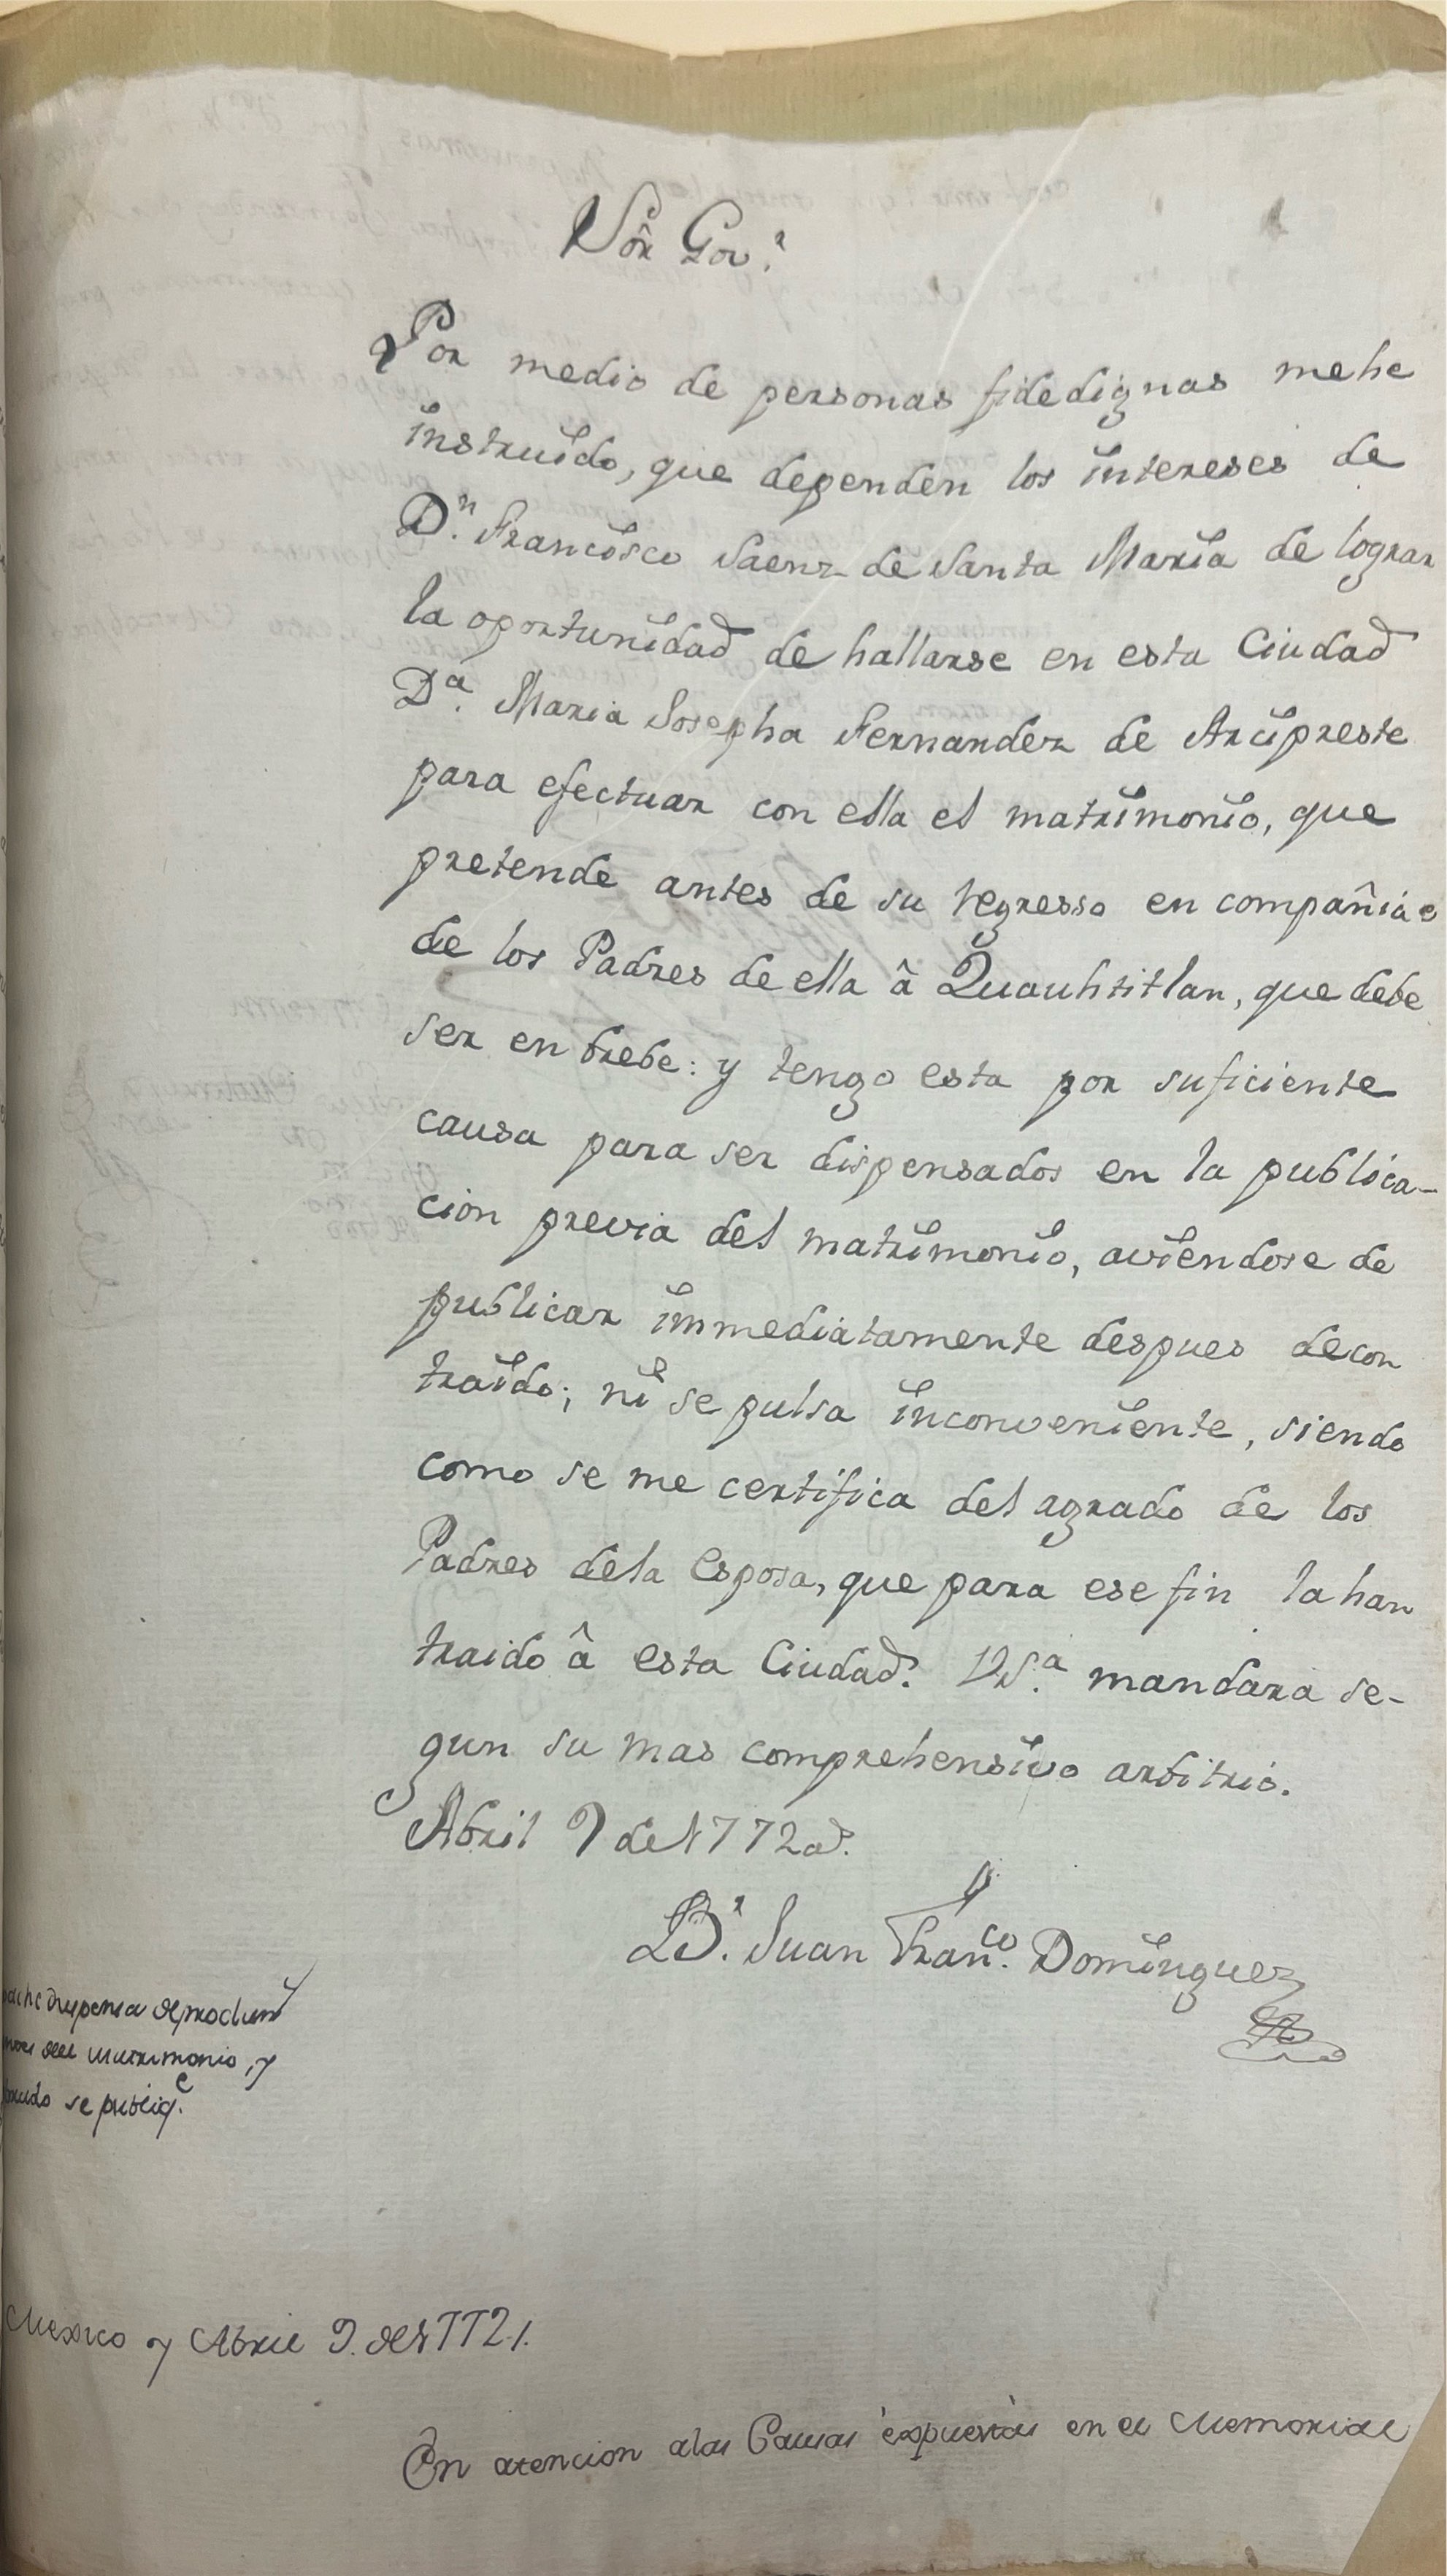 Sôr Gov.r
Por medio de personas fidedignas mehe
instruido, que dependen los intereses de
D.n Francisco Saenz de Santa Maria de lograr
la oportunidad de hallarse en esta Ciudad
D.a Maria Josepha Fernandez de Arcipreste
para efectuar con ella el matrimonio, que
pretende antes de su regresso en compañia
de los Padres de ella â Quauhtitlan, que debe
ser en brebe: y tengo esta por suficiente
causa para ser dispensados en la publica-
cion previa del matrimonio, aviendose de
publicar immediatamente despues decon
traido; ni se pulsa inconveniente, siendo
como se me certifica del agrado de los
Padres dela Esposa, que para ese fin la han
traido â esta Ciudad. VS.a mandara se-
gun su mas comprehensivo arbitrio.
Abril 9 de 1772 a.s
B.r Juan Fran.co Dominguez
dispensa
matrimonio, y
se publiq.e
Mexico y Abril 9. de 1772.
En atencion alas Causas expuestas en el Memorial